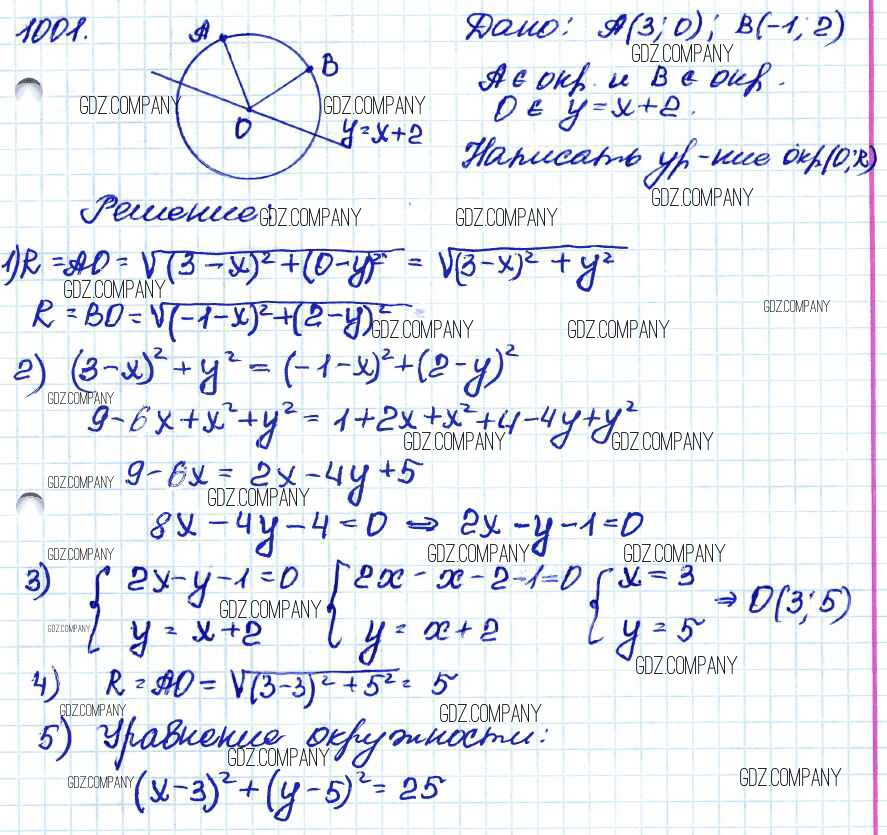 1001.
A
B
O
y=x+2
Дано: A(3; 0); B(-1; 2)
GDZ.COMPANY
A ∈ окр. и B ∈ окр.
GDZ.COMPANY GDZ.COMPANY
O ∈ y=x+2.
Написать ур-ние окр(O;R)
GDZ.COMPANY
Решение:
GDZ.COMPANY GDZ.COMPANY
1) R = AO = √(3-x)² + (0-y)² = √(3-x)² + y²
GDZ.COMPANY
GDZ.COMPANY
R = BO = √(-1-x)² + (2-y)²
GDZ.COMPANY GDZ.COMPANY
2) (3-x)² + y² = (-1-x)² + (2-y)²
GDZ.COMPANY
9-6x+x²+y² = 1+2x+x²+4-4y+y²
GDZ.COMPANY GDZ.COMPANY
9-6x = 2x-4y+5
GDZ.COMPANY
GDZ.COMPANY
8x-4y-4=0 ⇒ 2x-y-1=0
GDZ.COMPANY GDZ.COMPANY GDZ.COMPANY
3) { 2x-y-1=0 { 2x-x-2-1=0 { x=3
GDZ.COMPANY
⇒ O(3; 5)
GDZ.COMPANY
y=x+2 y=x+2 y=5
GDZ.COMPANY
4) R = AO = √(3-3)²+5² = 5
GDZ.COMPANY GDZ.COMPANY
5) Уравнение окружности:
GDZ.COMPANY
GDZ.COMPANY GDZ.COMPANY
(x-3)² + (y-5)² = 25